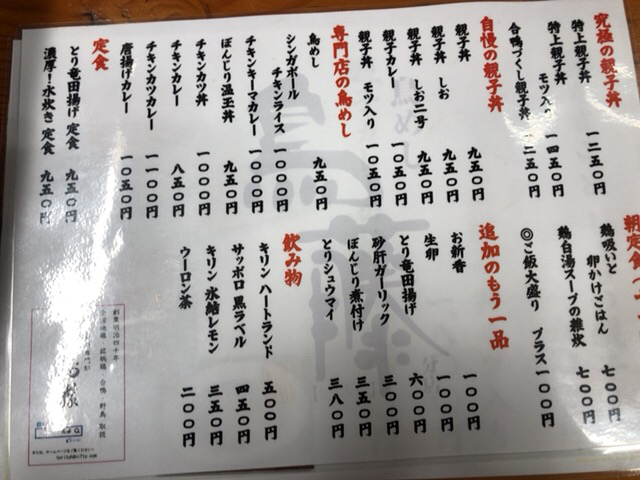 究極の親子丼
特上親子丼 一二五〇円
特上親子丼 モツ入り 一四五〇円
合鴨づくし親子丼 一二五〇円
自慢の親子丼
親子丼 九五〇円
親子丼 しお 九五〇円
親子丼 しお二号 九五〇円
親子カレー丼 一〇五〇円
親子丼 モツ入り 一〇五〇円
専門店の鳥めし
鳥めし 九五〇円
シンガポールチキンライス 一〇〇〇円
チキンキーマカレー 一〇〇〇円
ぼんじり温玉丼 九五〇円
チキンカツ丼 一〇〇〇円
チキンカレー 八五〇円
チキンカツカレー 一一〇〇円
唐揚げカレー 一〇五〇円
定食
とり竜田揚げ 定食 九五〇円
濃厚!水炊き 定食 九五〇円
朝定食
鶏吸いと
卵かけごはん 七〇〇円
鶏白湯スープの雑炊 七〇〇円
◎ご飯大盛り プラス一〇〇円
追加のもう一品
お新香 一〇〇円
生卵 一〇〇円
とり竜田揚げ 六〇〇円
砂肝ガーリック 三〇〇円
ぼんじり煮付け 三五〇円
とりシュウマイ 三八〇円
飲み物
キリン ハートランド 五〇〇円
サッポロ 黒ラベル 四五〇円
キリン 氷結レモン 三五〇円
ウーロン茶 二〇〇円
創業明治四十年